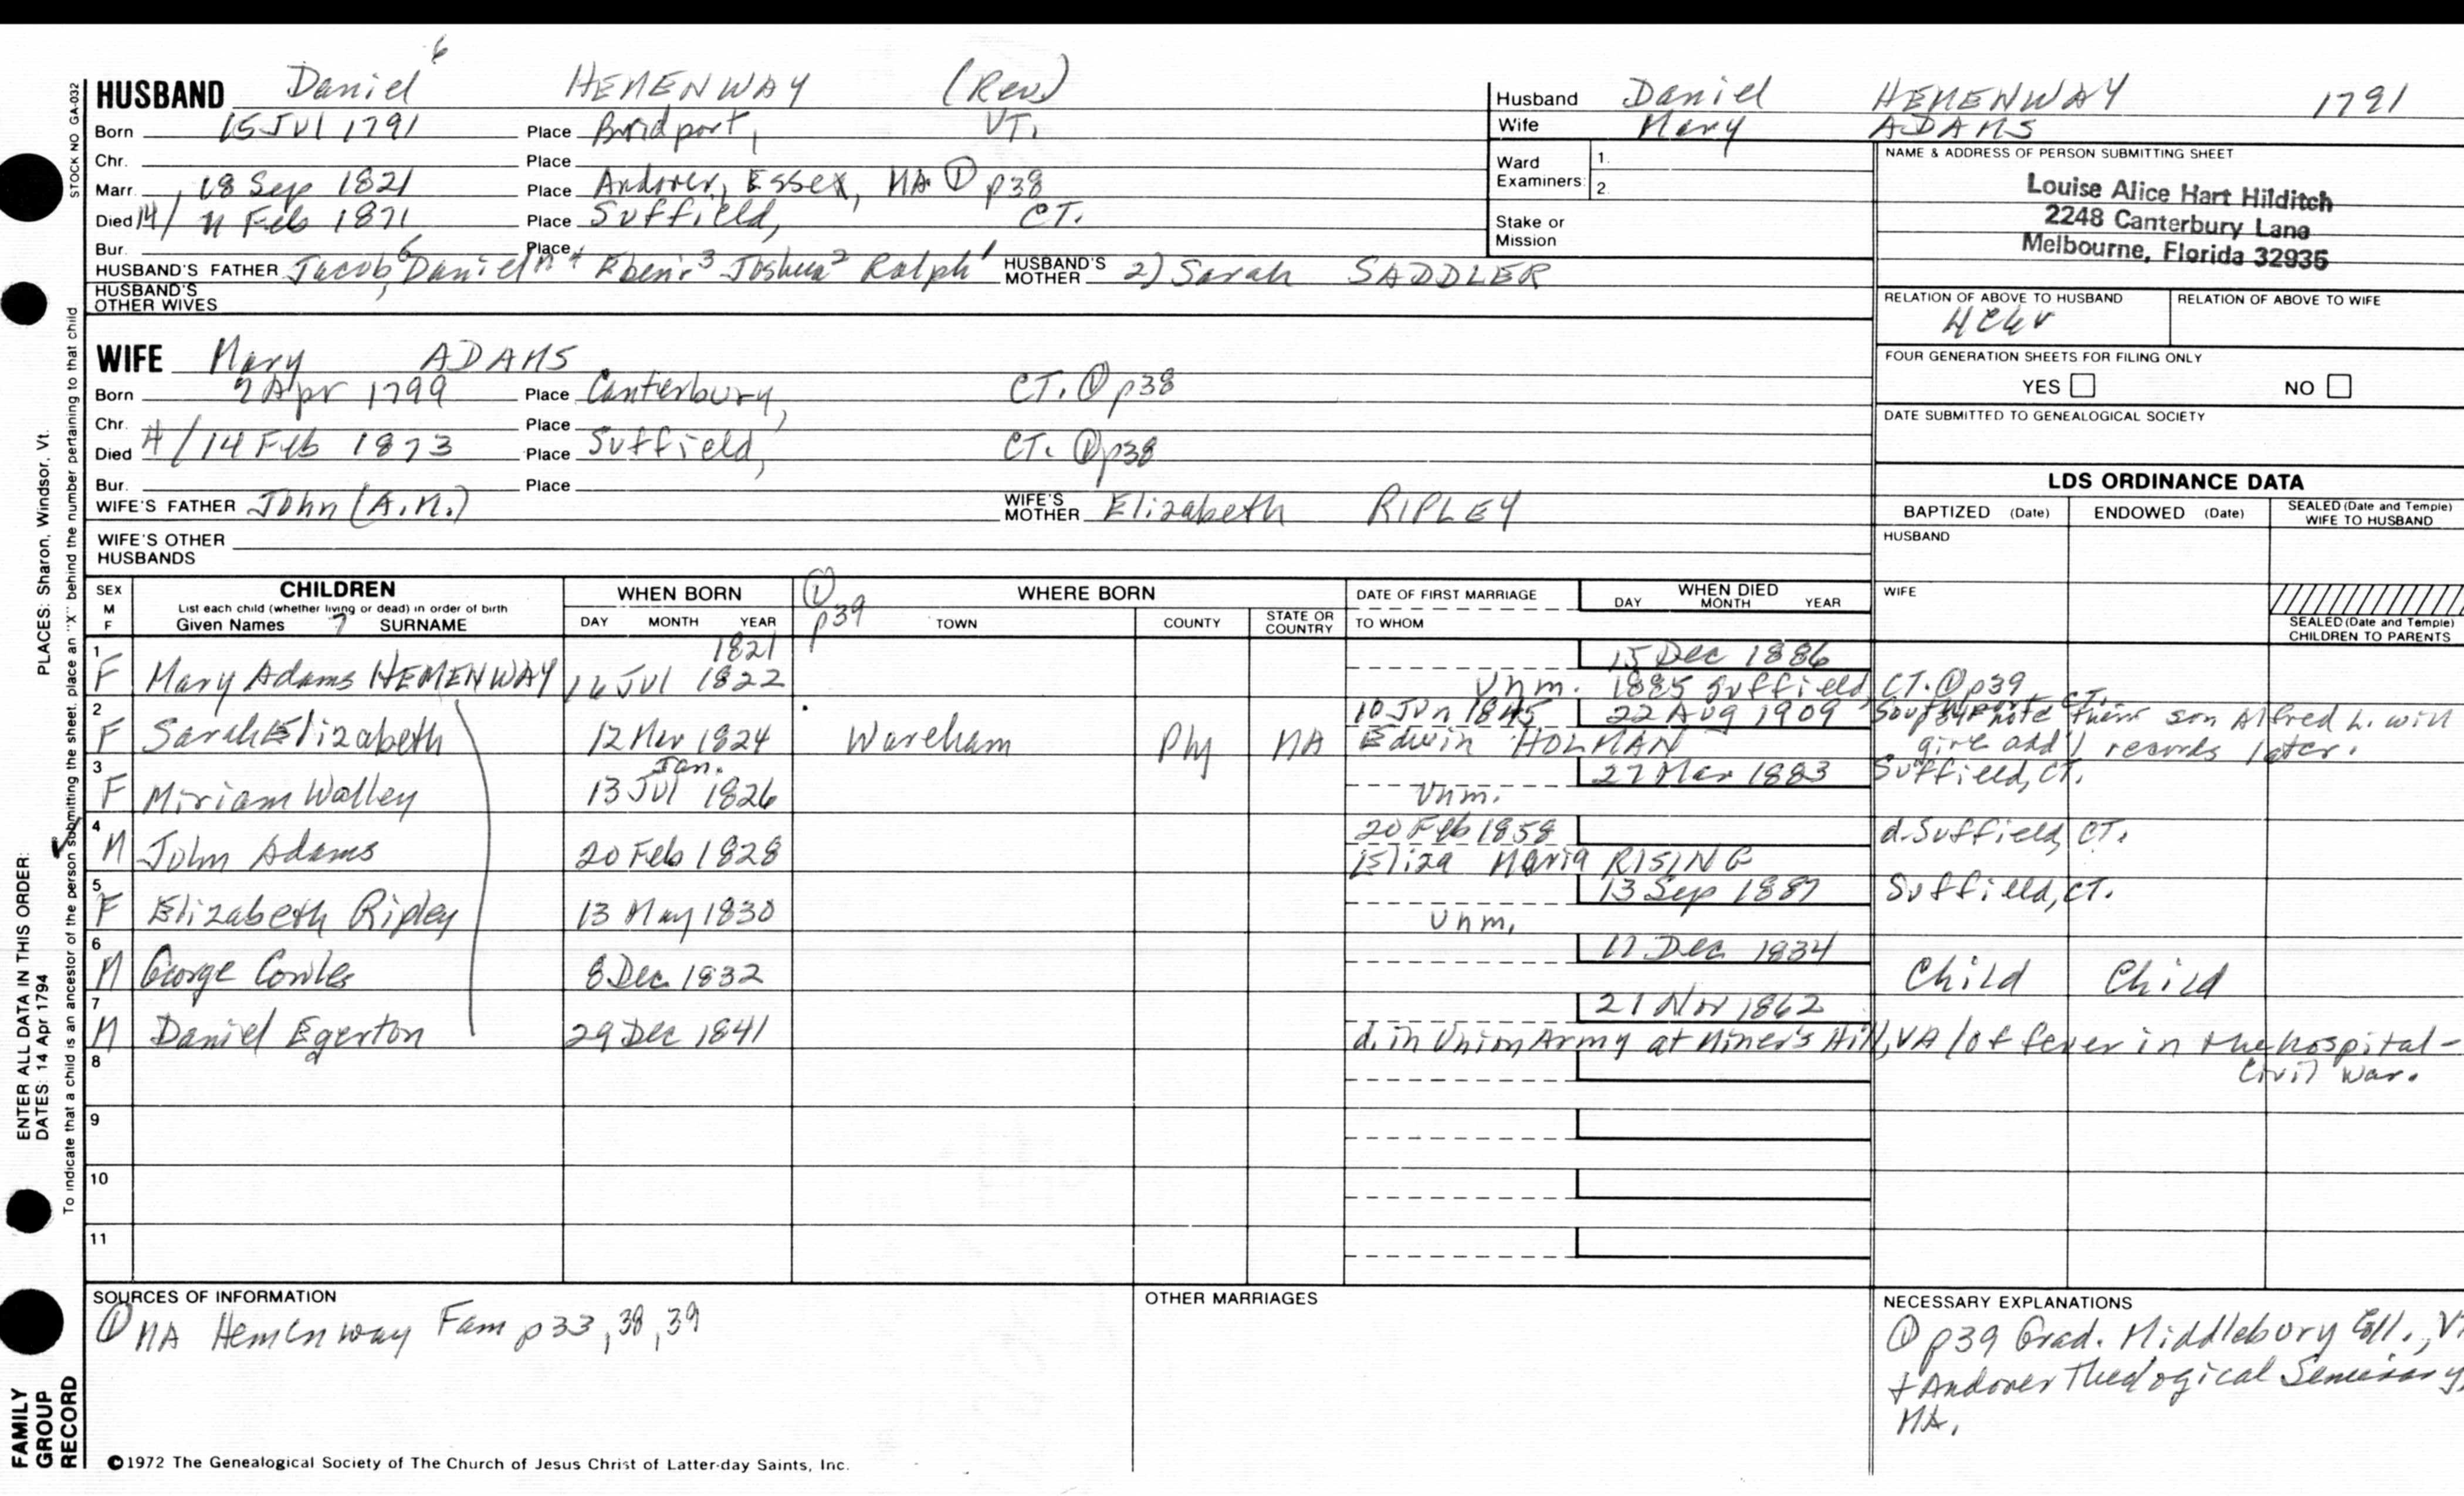 HUSBAND Daniel 6 HEMENWAY (Rev)
Born 15 Jul 1791 Place Bridport, VT.
Chr. Place
Marr. 18 Sep 1821 Place Andover, Essex, MA. ① p38
Died 14/ 11 Feb 1871 Place Suffield, CT.
Bur. Place
HUSBAND'S FATHER Jacob, Daniel 4 Ebenr 3 Joshua 2 Ralph 1 HUSBAND'S MOTHER 2) Sarah SADDLER
HUSBAND'S OTHER WIVES
Husband Daniel HEMENWAY 1791
Wife Mary ADAMS
Ward Examiners: 1.
2.
Stake or Mission
NAME & ADDRESS OF PERSON SUBMITTING SHEET
Louise Alice Hart Hilditch
2248 Canterbury Lane
Melbourne, Florida 32935
RELATION OF ABOVE TO HUSBAND RELATION OF ABOVE TO WIFE
FOUR GENERATION SHEETS FOR FILING ONLY
YES NO
DATE SUBMITTED TO GENEALOGICAL SOCIETY
WIFE Mary ADAMS
Born 9 Apr 1799 Place Canterbury, CT. ① p38
Chr. Place
Died 4/14 Feb 1873 Place Suffield, CT. ① p38
Bur. Place
WIFE'S FATHER John (A.M.) WIFE'S MOTHER Elizabeth RIPLEY
WIFE'S OTHER HUSBANDS
LDS ORDINANCE DATA
BAPTIZED (Date) ENDOWED (Date) SEALED (Date and Temple) WIFE TO HUSBAND
HUSBAND
WIFE
SEALED (Date and Temple) CHILDREN TO PARENTS
SEX M F
CHILDREN
List each child (whether living or dead) in order of birth
Given Names 7 SURNAME
WHEN BORN
DAY MONTH YEAR
① p39
WHERE BORN
TOWN COUNTY STATE OR COUNTRY
DATE OF FIRST MARRIAGE
TO WHOM
WHEN DIED
DAY MONTH YEAR
1821 15 Dec 1886
1 F Mary Adams HEMENWAY 16 Jul 1822 Unm. 1885 Suffield, CT. ① p39
10 Jun 1845 22 Aug 1909 CT. note their son Alfred L. will
2 F Sarah Elizabeth 12 Mar 1824 Wareham Ply MA Edwin HOLMAN give add'l records later.
Jan. 27 Mar 1883 Suffield, CT.
3 F Miriam Walley 13 Jul 1826 Unm.
20 Feb 1858 d. Suffield, CT.
4 M John Adams 20 Feb 1828 Eliza Maria RISING
13 Sep 1887 Suffield, CT.
5 F Elizabeth Ripley 13 May 1830 Unm.
17 Dec 1834
6 M George Cowles 8 Dec 1832 Child Child
21 Nov 1862
7 M Daniel Egerton 29 Dec 1841 d. in Union Army at Miner's Hill, VA /of fever in the hospital-
Civil War.
8
9
10
11
SOURCES OF INFORMATION
① MA Hemenway Fam p33, 38, 39
OTHER MARRIAGES
NECESSARY EXPLANATIONS
① p39 Grad. Middlebury Coll., VT
+ Andover Theological Seminary,
MA.
©1972 The Genealogical Society of The Church of Jesus Christ of Latter-day Saints, Inc.
FAMILY GROUP RECORD
ENTER ALL DATA IN THIS ORDER:
DATES: 14 Apr 1794 PLACES: Sharon, Windsor, Vt.
To indicate that a child is an ancestor of the person submitting the sheet, place an "X" behind the number pertaining to that child
STOCK NO GA-032